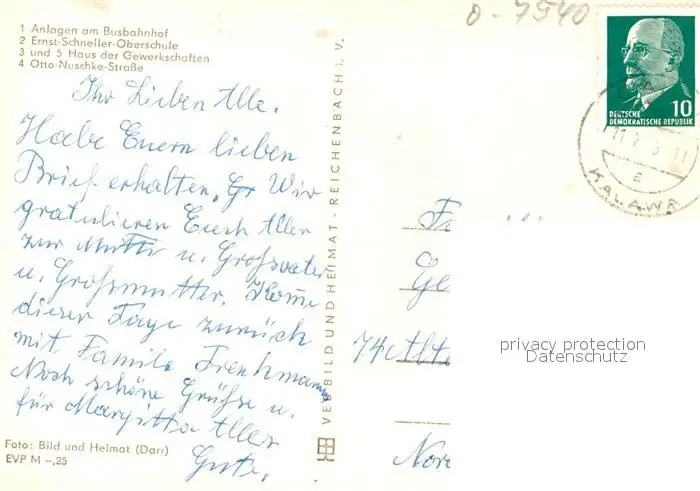 1 Anlagen am Busbahnhof
2 Ernst-Schneller-Oberschule
3 und 5 Haus der Gewerkschaften
4 Otto-Nuschke-Straße
Ihr Lieben Alle.
Habe Euern lieben
Brief erhalten. Wir
gratulieren Euch Allen
zur Mutti u. Großvater
u. Großmutter. Komme
dieser Tage zurück
mit Familie
Noch schöne Grüße u.
für Margitta Alles
Gute.
Foto: Bild und Heimat (Darr)
EVP M -,25
VEB BILD UND HEIMAT · REICHENBACH I. V.
D-7540
10
DEUTSCHE
DEMOKRATISCHE REPUBLIK
CALAU
a
KALAWA
F
Ge
74 Alte
privacy protection
Datenschutz
Nor